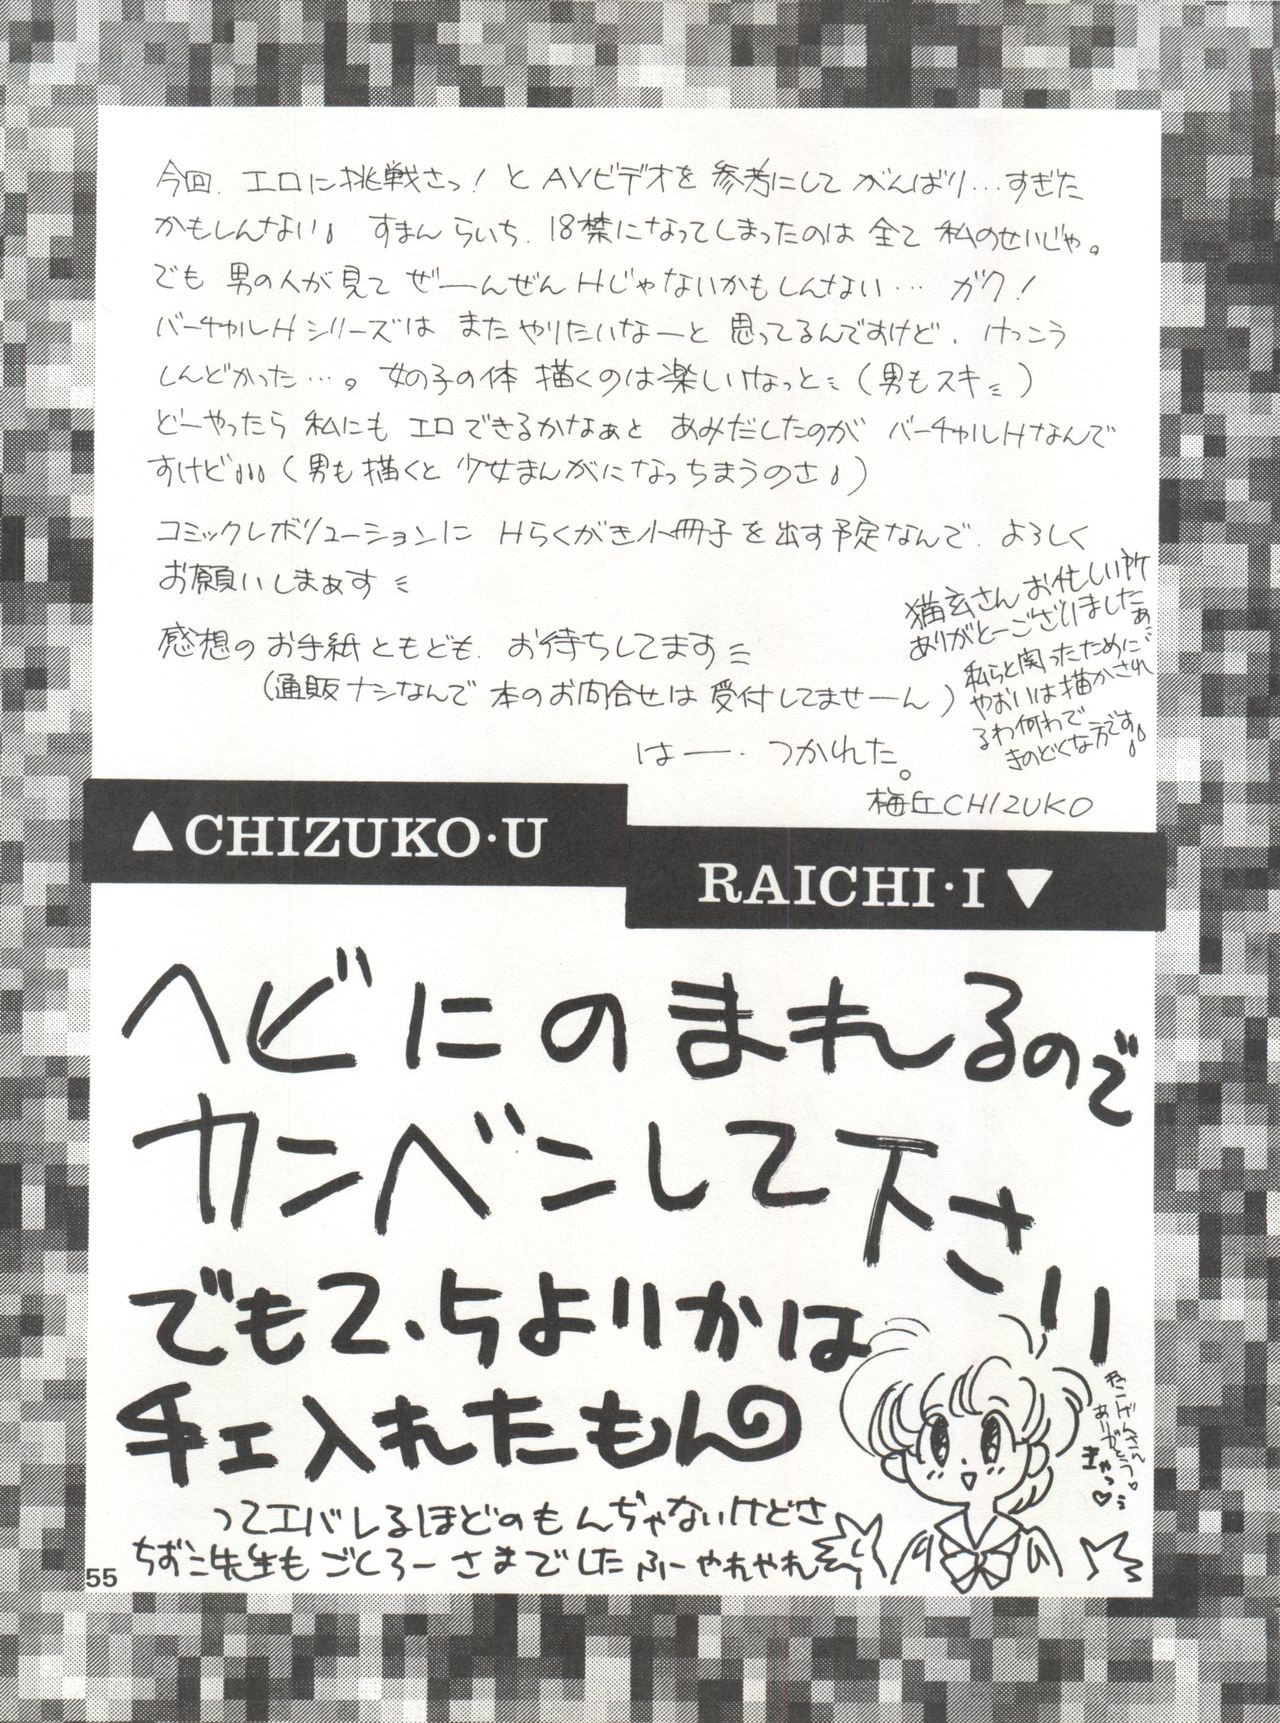 今回、エロに挑戦さっ！とAVビデオを参考にしてがんばり…すぎた
かもしんない♪ すまんらいち、18禁になってしまったのは全て私のせいじゃ。
でも男の人が見てぜーんぜんHじゃないかもしんない… ガク！
バーチャルHシリーズはまたやりたいなーと思ってるんですけど、けっこう
しんどかった…。女の子の体描くのは楽しいなっと（男もスキ）
どーやったら私にもエロできるかなぁとあみだしたのがバーチャルHなんで
すけど♪♪♪（男も描くと少女まんがになっちまうのさ♪）
コミックレボリューションにHらくがき小冊子を出す予定なんで、よろしく
お願いしまぁす
感想のお手紙ともども、お待ちしてます
（通販ナシなんで本のお問合せは受付してませーん）
はー、つかれた。
梅丘CHIZUKO
猫玄さんお忙しい所
ありがとーございましたぁ
私らと関ったために
やおいは描かされ
るわ何わで
きのどくな方です♪
▲CHIZUKO・U
RAICHI・I▼
ヘビにのまれるので
カンベンして下さい
でも2.5よりかは
チェ入れたもん
ってエバレるほどのもんぢゃないけどさ
ちずこ先生もごくろーさまでした ふーやれやれ
ねこげんさん
ありがとう♡
きゃっ♡
55